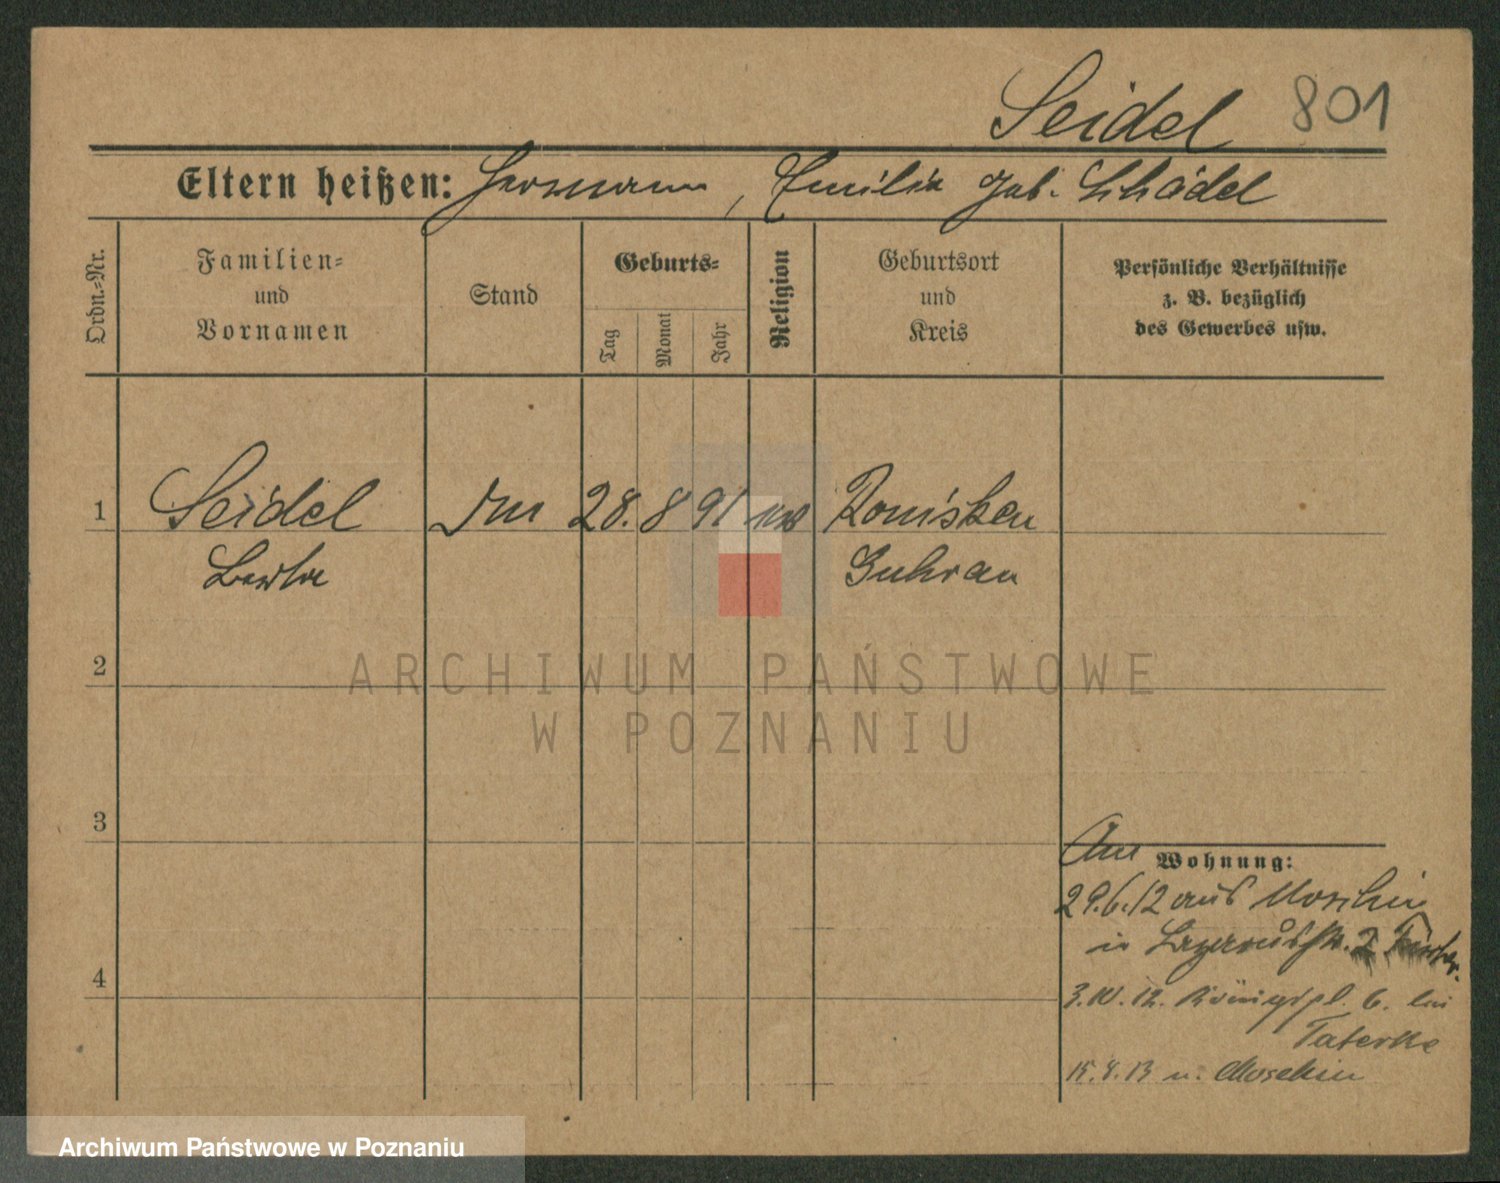 Seidel 801
Eltern heißen: Hermann, Emilie geb. Schädel
Ordn.-Nr.
Familien-
und
Vornamen
Stand
Geburts-
Tag
Monat
Jahr
Religion
Geburtsort
und
Kreis
Persönliche Verhältnisse
z. B. bezüglich
des Gewerbes usw.
1 Seidel 28. 8 91 Ronisken
Berta Guhrau
2
ARCHIWUM PAŃSTWOWE
W POZNANIU
3
Wohnung:
Am
29.6.12 aus Moschin
in Lazarusstr. 2
4
3.10.12. Königspl. 6. bei
Taterke
15.4.13 n. Moschin
Archiwum Państwowe w Poznaniu